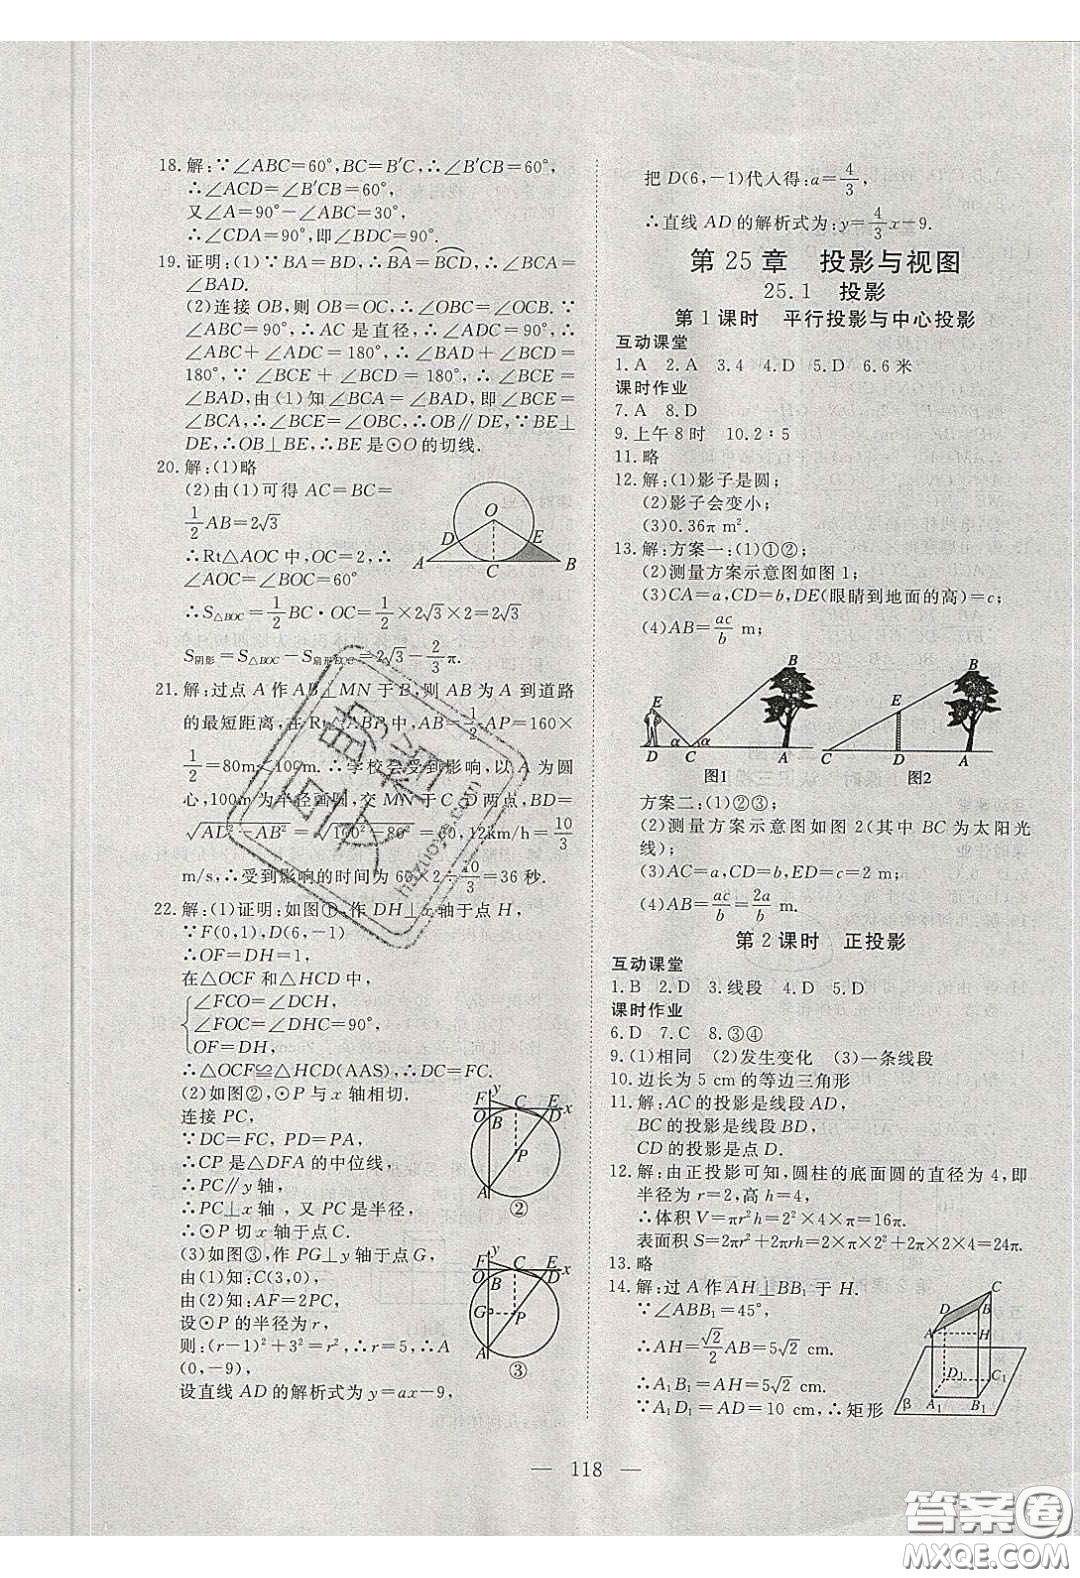 18.解:∵∠ABC=60°,BC=B′C,∴∠B′CB=60°,
∴∠ACD=∠B′CB=60°,
又∠A=90°-∠ABC=30°,
∴∠CDA=90°,即∠BDC=90°.
19.证明:(1)∵BA=BD,∴BA=BCD,∴∠BCA=
∠BAD.
(2)连接OB,则OB=OC,∴∠OBC=∠OCB.∵
∠ABC=90°,∴AC是直径,∴∠ADC=90°,
∴∠BAD+∠BCD=
180°,∵∠BCE+∠BCD=180°,∴∠BCE=
∠BAD,由(1)知∠BCA=∠BAD,即∠BCE=
∠BCA,∴∠BCE=∠OBC,∴OB∥DE,∵BE⊥
DE,∴OB⊥BE,∴BE是⊙O的切线.
20.解:(1)略
(2)由(1)可得AC=BC=
1/2AB=2√3
∴Rt△AOC中,OC=2,∴
∠AOC=∠BOC=60°
∴S△BOC=1/2BC·OC=1/2×2√3×2=2√3
S阴影=S△BOC-S扇形EOC=2√3-2/3π.
21.解:过点A作AB⊥MN于B,则AB为A到道路
的最短距离,在Rt△ABP中,AB=1/2AP=160×
1/2=80m<100m.∴学校会受到影响,以A为圆
心,100m为半径画圆,交MN于C、D两点,BD=
√AD²-AB²=√100²-80²=60,12km/h=10/3
m/s,∴受到影响的时间为60×2÷10/3=36秒.
22.解:(1)证明:如图①,作DH⊥x轴于点H,
∵F(0,1),D(6,-1)
∴OF=DH=1,
在△OCF和△HCD中,
∠FCO=∠DCH,
∠FOC=∠DHC=90°,
OF=DH,
∴△OCF≌△HCD(AAS),∴DC=FC.
(2)如图②,⊙P与x轴相切.
连接PC,
∵DC=FC,PD=PA,
∴CP是△DFA的中位线,
∴PC∥y轴,
∴PC⊥x轴,又PC是半径,
∴⊙P切x轴于点C.
②
(3)如图③,作PG⊥y轴于点G,
由(1)知:C(3,0),
由(2)知:AF=2PC,
设⊙P的半径为r,
则:(r-1)²+3²=r²,∴r=5,∴A
(0,-9),
③
设直线AD的解析式为y=ax-9,
把D(6,-1)代入得:a=4/3,
∴直线AD的解析式为:y=4/3x-9.
第25章 投影与视图
25.1 投影
第1课时 平行投影与中心投影
互动课堂
1.A 2.A 3.4 4.D 5.D 6.6米
课时作业
7.A 8.D
9.上午8时 10.2∶5
11.略
12.解:(1)影子是圆;
(2)影子会变小;
(3)0.36π m².
13.解:方案一:(1)①②;
(2)测量方案示意图如图1;
(3)CA=a,CD=b,DE(眼睛到地面的高)=c;
(4)AB=ac/b m;
图1 图2
方案二:(1)②③;
(2)测量方案示意图如图2(其中BC为太阳光
线);
(3)AC=a,CD=b,ED=c=2 m;
(4)AB=ac/b=2a/b m.
第2课时 正投影
互动课堂
1.B 2.D 3.线段 4.D 5.D
课时作业
6.D 7.C 8.③④
9.(1)相同 (2)发生变化 (3)一条线段
10.边长为5 cm的等边三角形
11.解:AC的投影是线段AD,
BC的投影是线段BD,
CD的投影是点D.
12.解:由正投影可知,圆柱的底面圆的直径为4,即
半径为r=2,高h=4,
∴体积V=πr²h=2²×4×π=16π.
表面积S=2πr²+2πrh=2×π×2²+2π×2×4=24π.
13.略
14.解:过A作AH⊥BB₁于H.
∵∠ABB₁=45°,
∴AH=√2/2AB=5√2 cm.
∴A₁B₁=AH=5√2 cm.
∵A₁D₁=AD=10 cm,∴矩形
— 118 —
答案圈
MXQE.COM